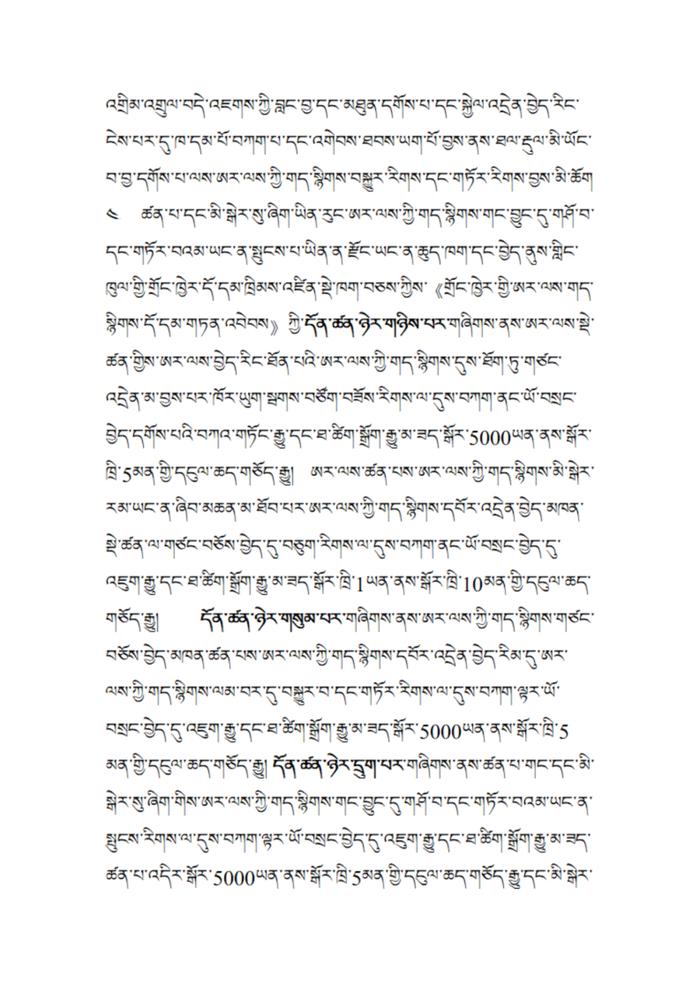 འགྲིམ་འགྲུལ་བདེ་འཇགས་ཀྱི་བླང་བྱ་དང་མཐུན་དགོས་པ་དང་སྐྱེལ་འདྲེན་བྱེད་རིང་
ངེས་པར་དུ་ཁ་དམ་པོ་བཀག་པ་དང་འགེབས་ཐབས་ཡག་པོ་བྱས་ནས་ཐལ་རྡུལ་མི་ཡོང་
བ་བྱ་དགོས་པ་ལས་ཨར་ལས་ཀྱི་གད་སྙིགས་བསྐྱུར་རིགས་དང་གཏོར་རིགས་བྱས་མི་ཆོག
༤ ཚན་པ་དང་མི་སྒེར་སུ་ཞིག་ཡིན་རུང་ཨར་ལས་ཀྱི་གད་སྙིགས་གང་བྱུང་དུ་གཤོ་བ་
དང་གཏོར་བའམ་ཡང་ན་སྤུངས་པ་ཡིན་ན་རྫོང་ཡང་ན་ཆུད་ཁག་དང་བྱེད་ནུས་གླིང་
ཁུལ་གྱི་གྲོང་ཁྱེར་དོ་དམ་ཁྲིམས་འཛིན་སྡེ་ཁག་བཅས་ཀྱིས་《གྲོང་ཁྱེར་གྱི་ཨར་ལས་གད་
སྙིགས་དོ་དམ་གཏན་འབེབས》ཀྱི་དོན་ཚན་ཉེར་གཉིས་པར་གཞིགས་ནས་ཨར་ལས་སྡེ་
ཚན་གྱིས་ཨར་ལས་བྱེད་རིང་ཐོན་པའི་ཨར་ལས་ཀྱི་གད་སྙིགས་དུས་ཐོག་ཏུ་གཙང་
འདྲེན་མ་བྱས་པར་ཁོར་ཡུག་སྦགས་བཙོག་བཟོས་རིགས་ལ་དུས་བཀག་ནང་ཡོ་བསྲང་
བྱེད་དགོས་པའི་བཀའ་གཏོང་རྒྱུ་དང་ཐ་ཚིག་སྒྲོག་རྒྱུ་མ་ཟད་སྒོར་5000ཡན་ནས་སྒོར་
ཁྲི་5མན་གྱི་དངུལ་ཆད་གཅོད་རྒྱུ། ཨར་ལས་ཚན་པས་ཨར་ལས་ཀྱི་གད་སྙིགས་མི་སྒེར་
རམ་ཡང་ན་ཞིབ་མཆན་མ་ཐོབ་པར་ཨར་ལས་ཀྱི་གད་སྙིགས་དབོར་འདྲེན་བྱེད་མཁན་
སྡེ་ཚན་ལ་གཙང་བཅོས་བྱེད་དུ་བཅུག་རིགས་ལ་དུས་བཀག་ནང་ཡོ་བསྲང་བྱེད་དུ་
འཇུག་རྒྱུ་དང་ཐ་ཚིག་སྒྲོག་རྒྱུ་མ་ཟད་སྒོར་ཁྲི་1ཡན་ནས་སྒོར་ཁྲི་10མན་གྱི་དངུལ་ཆད་
གཅོད་རྒྱུ། དོན་ཚན་ཉེར་གསུམ་པར་གཞིགས་ནས་ཨར་ལས་ཀྱི་གད་སྙིགས་གཙང་
བཅོས་བྱེད་མཁན་ཚན་པས་ཨར་ལས་ཀྱི་གད་སྙིགས་དབོར་འདྲེན་བྱེད་རིམ་དུ་ཨར་
ལས་ཀྱི་གད་སྙིགས་ལམ་བར་དུ་བསྐྱུར་བ་དང་གཏོར་རིགས་ལ་དུས་བཀག་ལྟར་ཡོ་
བསྲང་བྱེད་དུ་འཇུག་རྒྱུ་དང་ཐ་ཚིག་སྒྲོག་རྒྱུ་མ་ཟད་སྒོར་5000ཡན་ནས་སྒོར་ཁྲི་5
མན་གྱི་དངུལ་ཆད་གཅོད་རྒྱུ། དོན་ཚན་ཉེར་དྲུག་པར་གཞིགས་ནས་ཚན་པ་གང་དང་མི་
སྒེར་སུ་ཞིག་གིས་ཨར་ལས་ཀྱི་གད་སྙིགས་གང་བྱུང་དུ་གཤོ་བ་དང་གཏོར་བའམ་ཡང་ན་
སྤུངས་རིགས་ལ་དུས་བཀག་ལྟར་ཡོ་བསྲང་བྱེད་དུ་འཇུག་རྒྱུ་དང་ཐ་ཚིག་སྒྲོག་རྒྱུ་མ་ཟད་
ཚན་པ་འདིར་སྒོར་5000ཡན་ནས་སྒོར་ཁྲི་5མན་གྱི་དངུལ་ཆད་གཅོད་རྒྱུ་དང་མི་སྒེར་